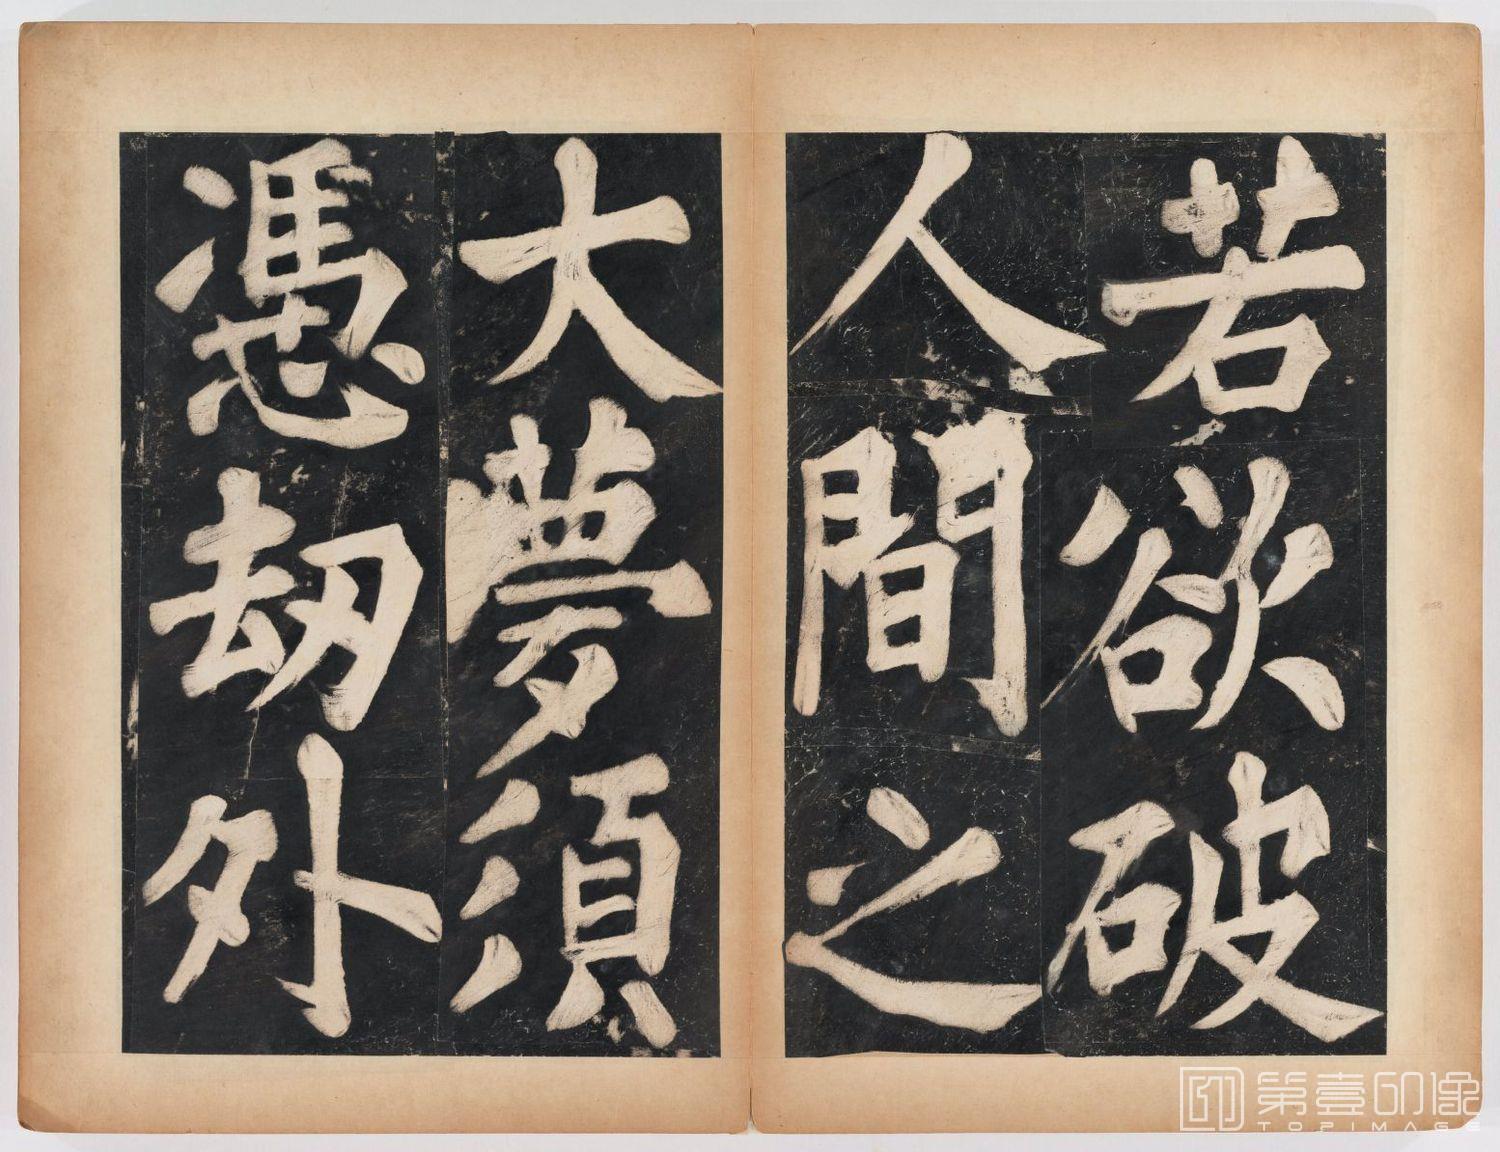 若欲破
人間之
大夢須
憑劫外
第壹印像
TOPIMAGE